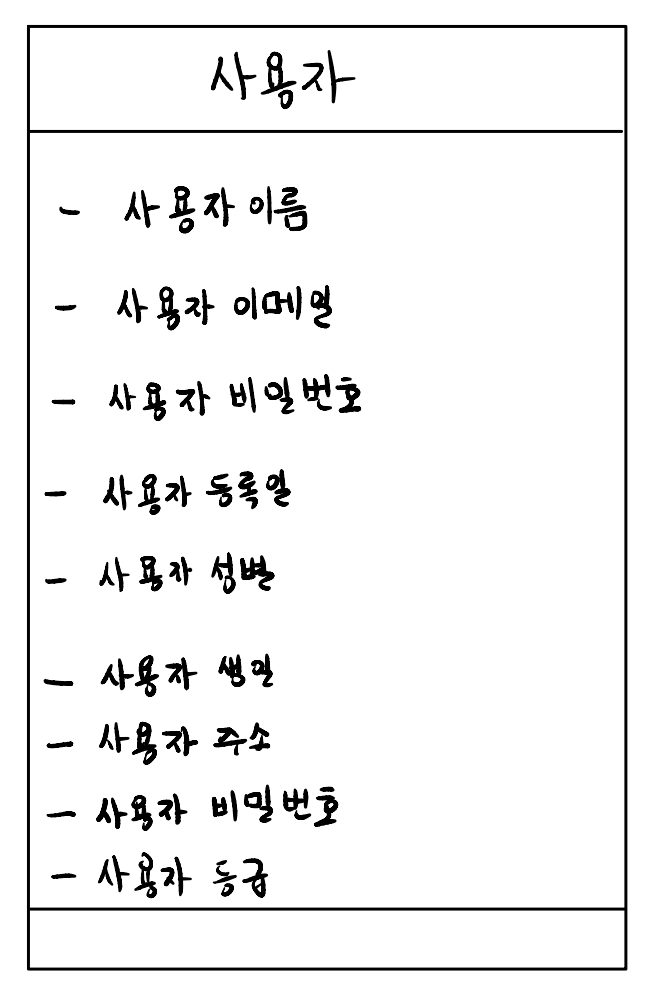 사용자
- 사용자 이름
- 사용자 이메일
- 사용자 비밀번호
- 사용자 등록일
- 사용자 성별
- 사용자 생일
- 사용자 주소
- 사용자 비밀번호
- 사용자 등급